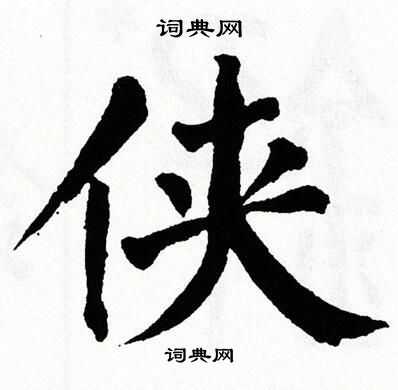 词典网
侠
词典网